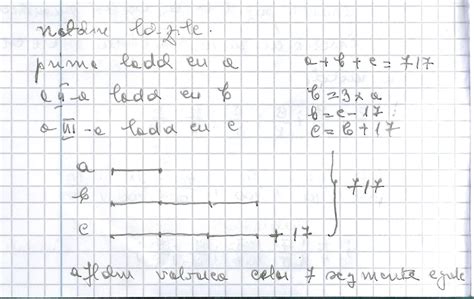 notăm lăzile.
prima ladă cu a a + b + c = 717
a II-a ladă cu b b = 3 × a
b = c - 17
a III-a ladă cu c c = b + 17
a
b
c + 17 717
aflăm valoarea celor 7 segmente egale